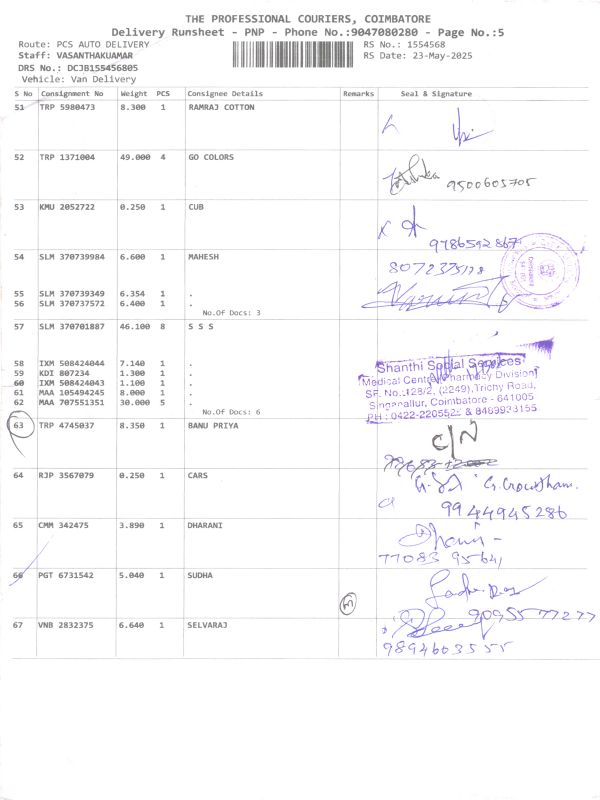 THE PROFESSIONAL COURIERS, COIMBATORE
Delivery Runsheet - PNP - Phone No.:9047080280 - Page No.:5
Route: PCS AUTO DELIVERY RS No.: 1554568
Staff: VASANTHAKUAMAR RS Date: 23-May-2025
DRS No.: DCJB155456805
Vehicle: Van Delivery
S No Consignment No Weight PCS Consignee Details Remarks Seal & Signature
51 TRP 5980473 8.300 1 RAMRAJ COTTON
52 TRP 1371004 49.000 4 GO COLORS
9500605705
53 KMU 2052722 0.250 1 CUB
9786592867
54 SLM 370739984 6.600 1 MAHESH
8072375178
55 SLM 370739349 6.354 1 .
56 SLM 370737572 6.400 1 .
No.Of Docs: 3
57 SLM 370701887 46.100 8 S S S
Shanthi Social Services
58 IXM 508424044 7.140 1 .
Medical Centre(Pharmacy Division)
59 KDI 807234 1.300 1 .
60 IXM 508424043 1.100 1 .
SF. No.:128/2, (2249),Trichy Road,
61 MAA 105494245 8.000 1 .
Singanallur, Coimbatore - 641005
62 MAA 707551351 30.000 5 .
No.Of Docs: 6
PH : 0422-2205522 & 8489933155
63 TRP 4745037 8.350 1 BANU PRIYA
C/N
64 RJP 3567079 0.250 1 CARS
9944945286
65 CMM 342475 3.890 1 DHARANI
77083 95641
66 PGT 6731542 5.040 1 SUDHA
9095577277
67 VNB 2832375 6.640 1 SELVARAJ
9894603555